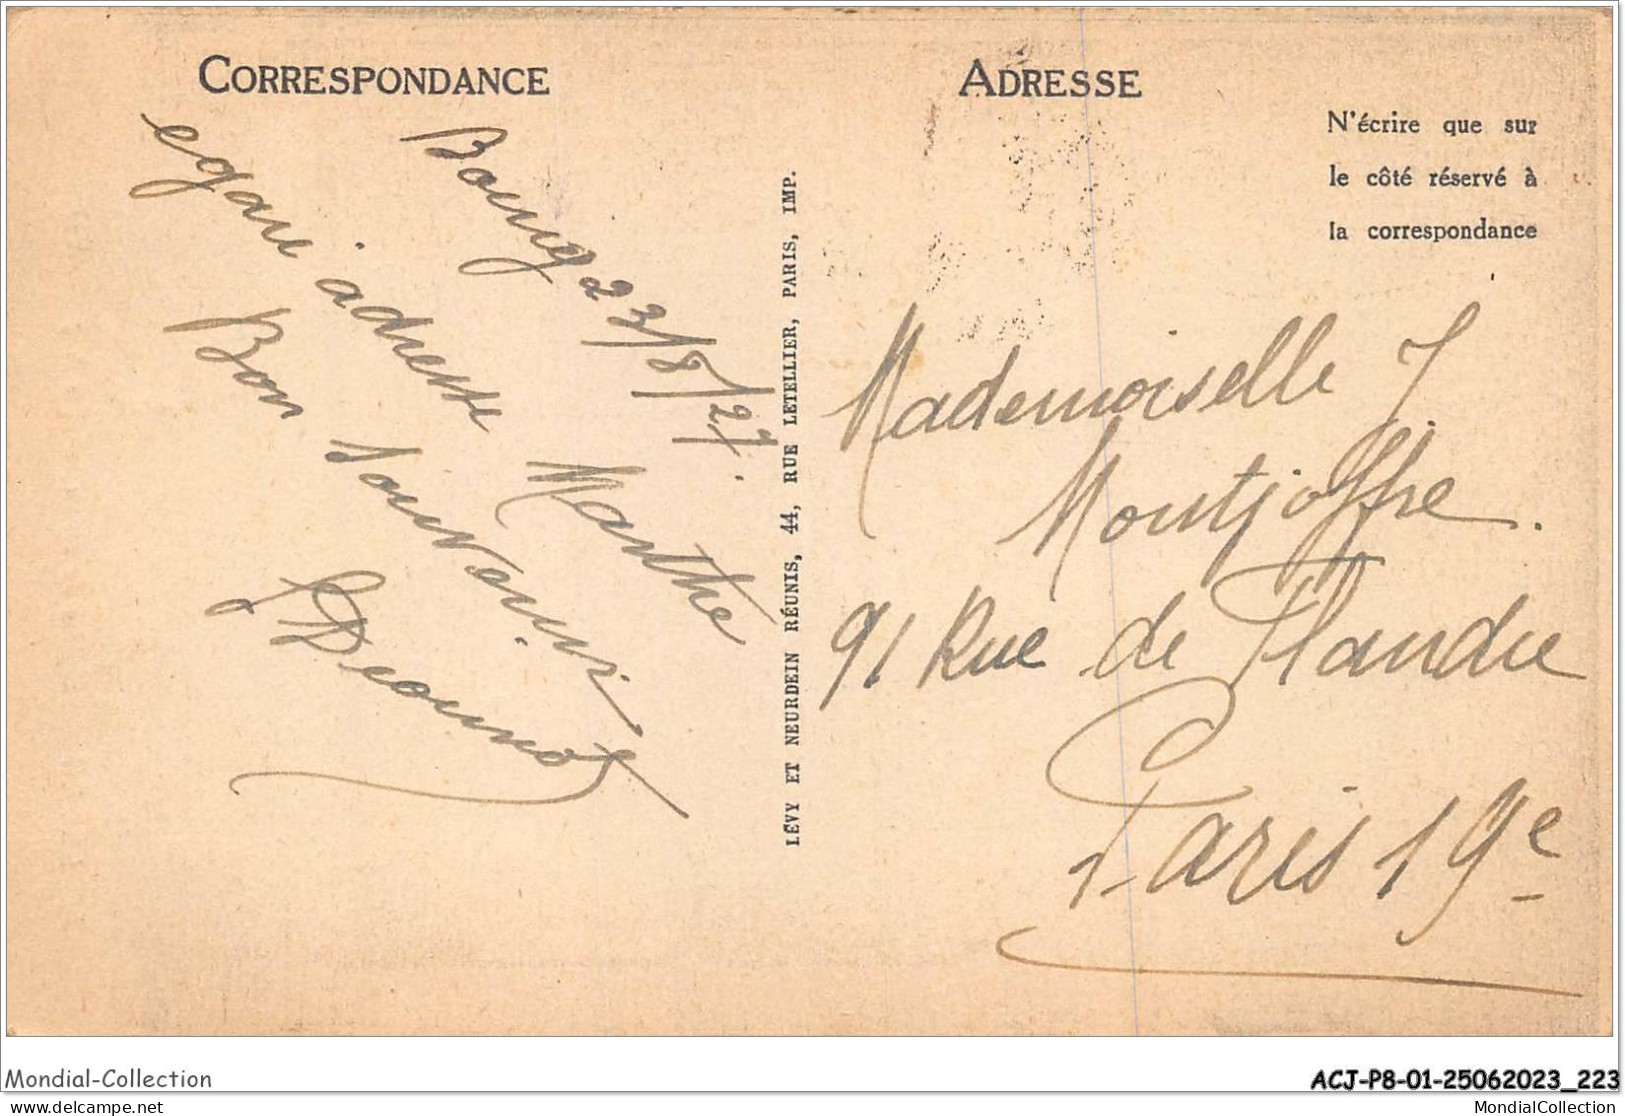 CORRESPONDANCE
Bourg 23/8/27.
egaré adresse Marthe
Bon Souvenir
ADRESSE
N'écrire que sur
le côté réservé à
la correspondance
LÉVY ET NEURDEIN RÉUNIS, 44, RUE LETELLIER, PARIS, IMP.
Mademoiselle J.
Montjoffre.
91 Rue de Flandre
Paris 19e
Mondial-Collection
ACJ-P8-01-25062023_223
delcampe.net
MondialCollection